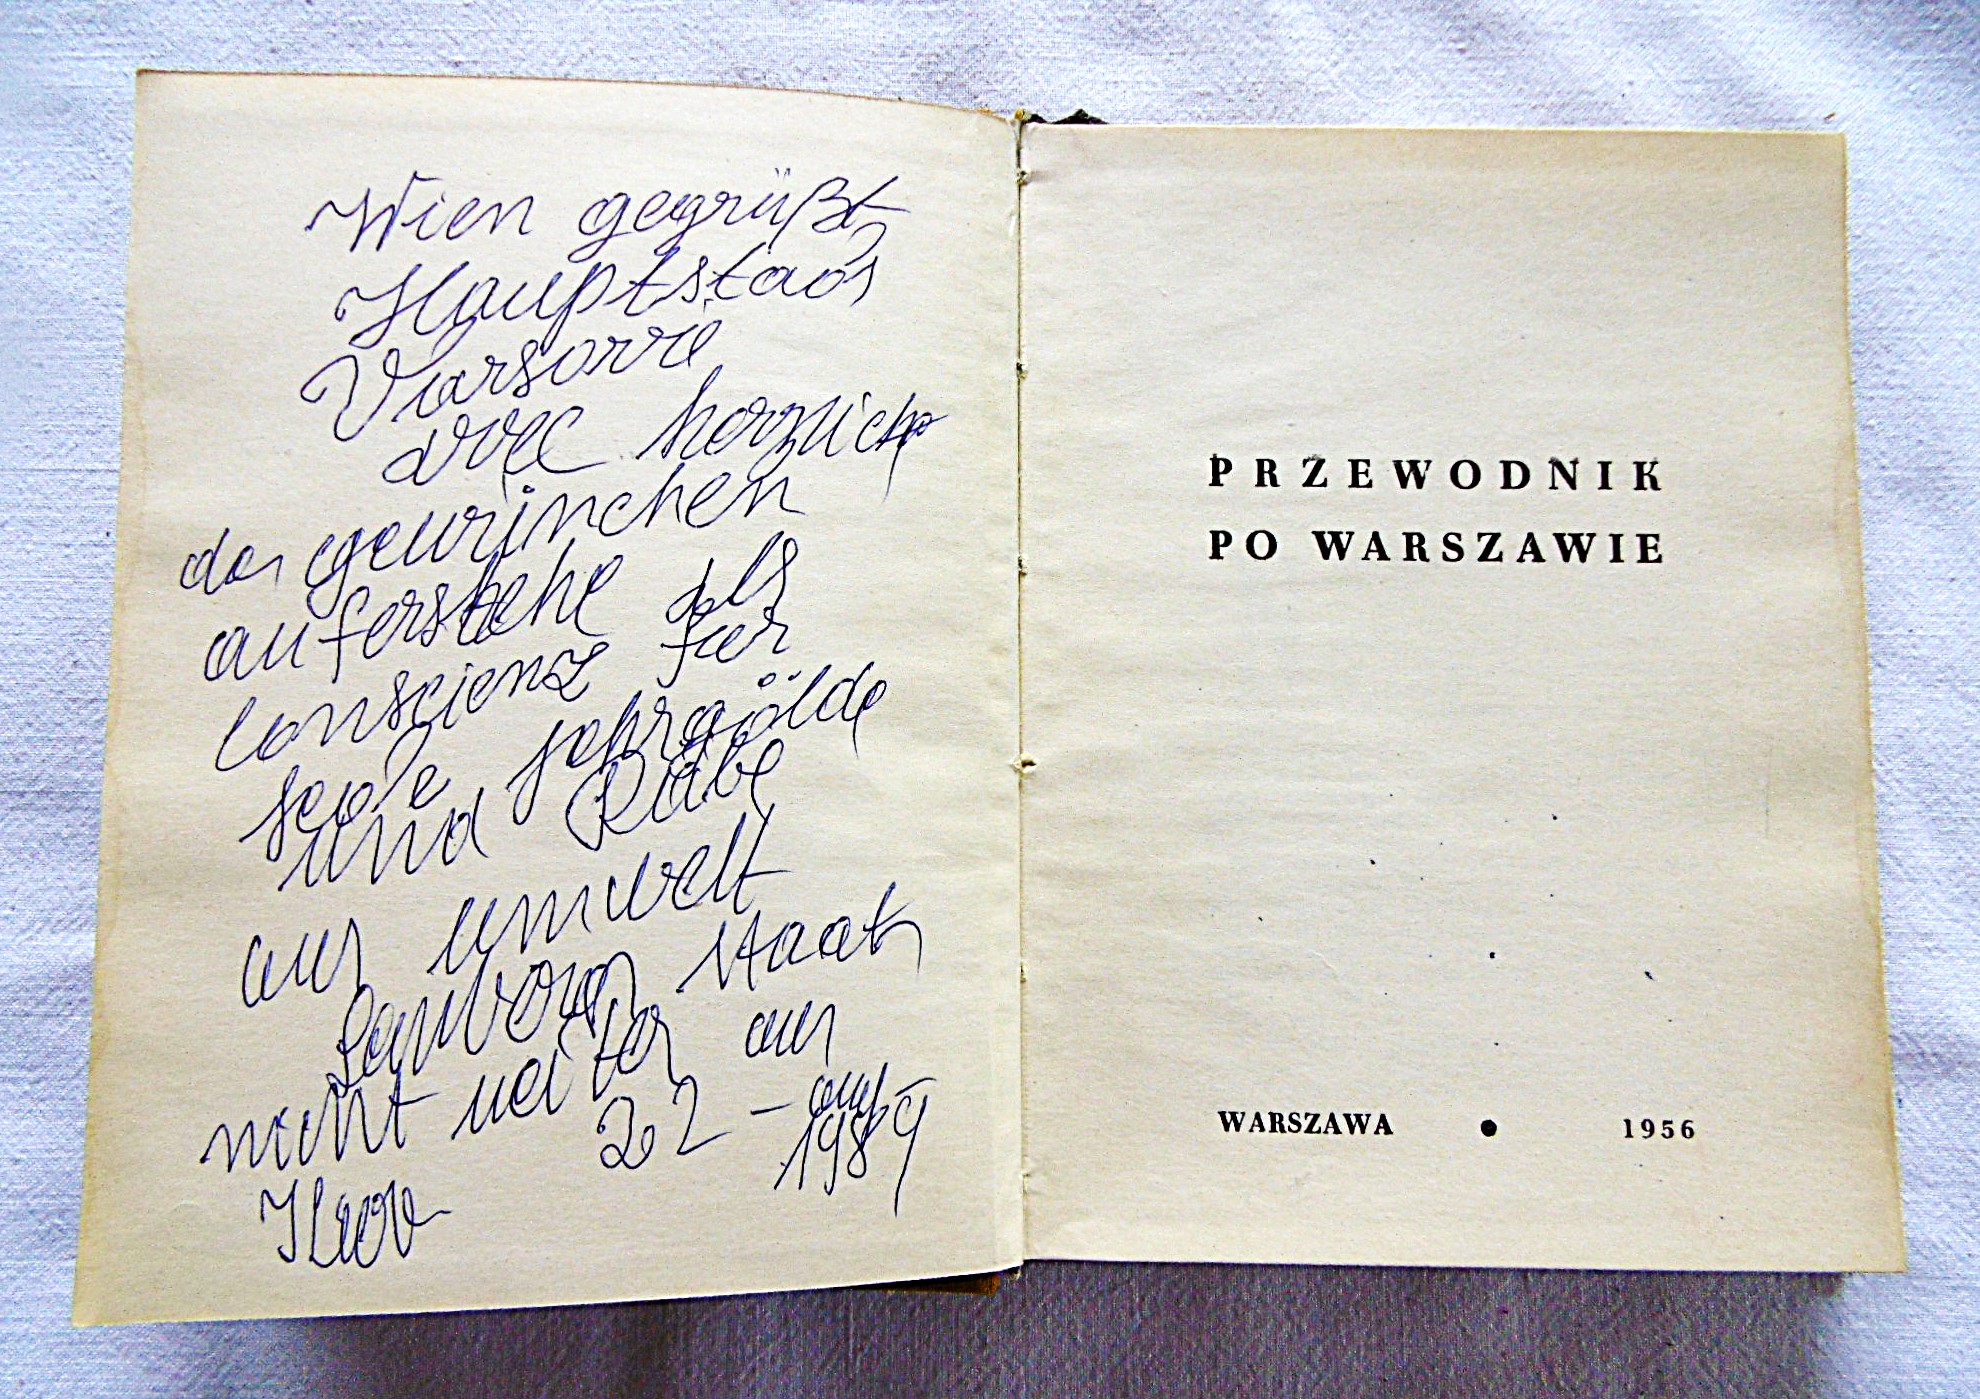 Wien gegrüßt
Hauptstads
Varsovie
avec herzliche
das gewünchen
auferstehe als
Conscienz für
seole
und Räbe
aus umwelt
staats
nicht weiter aus
22 - aug -
1989
PRZEWODNIK
PO WARSZAWIE
WARSZAWA • 1956